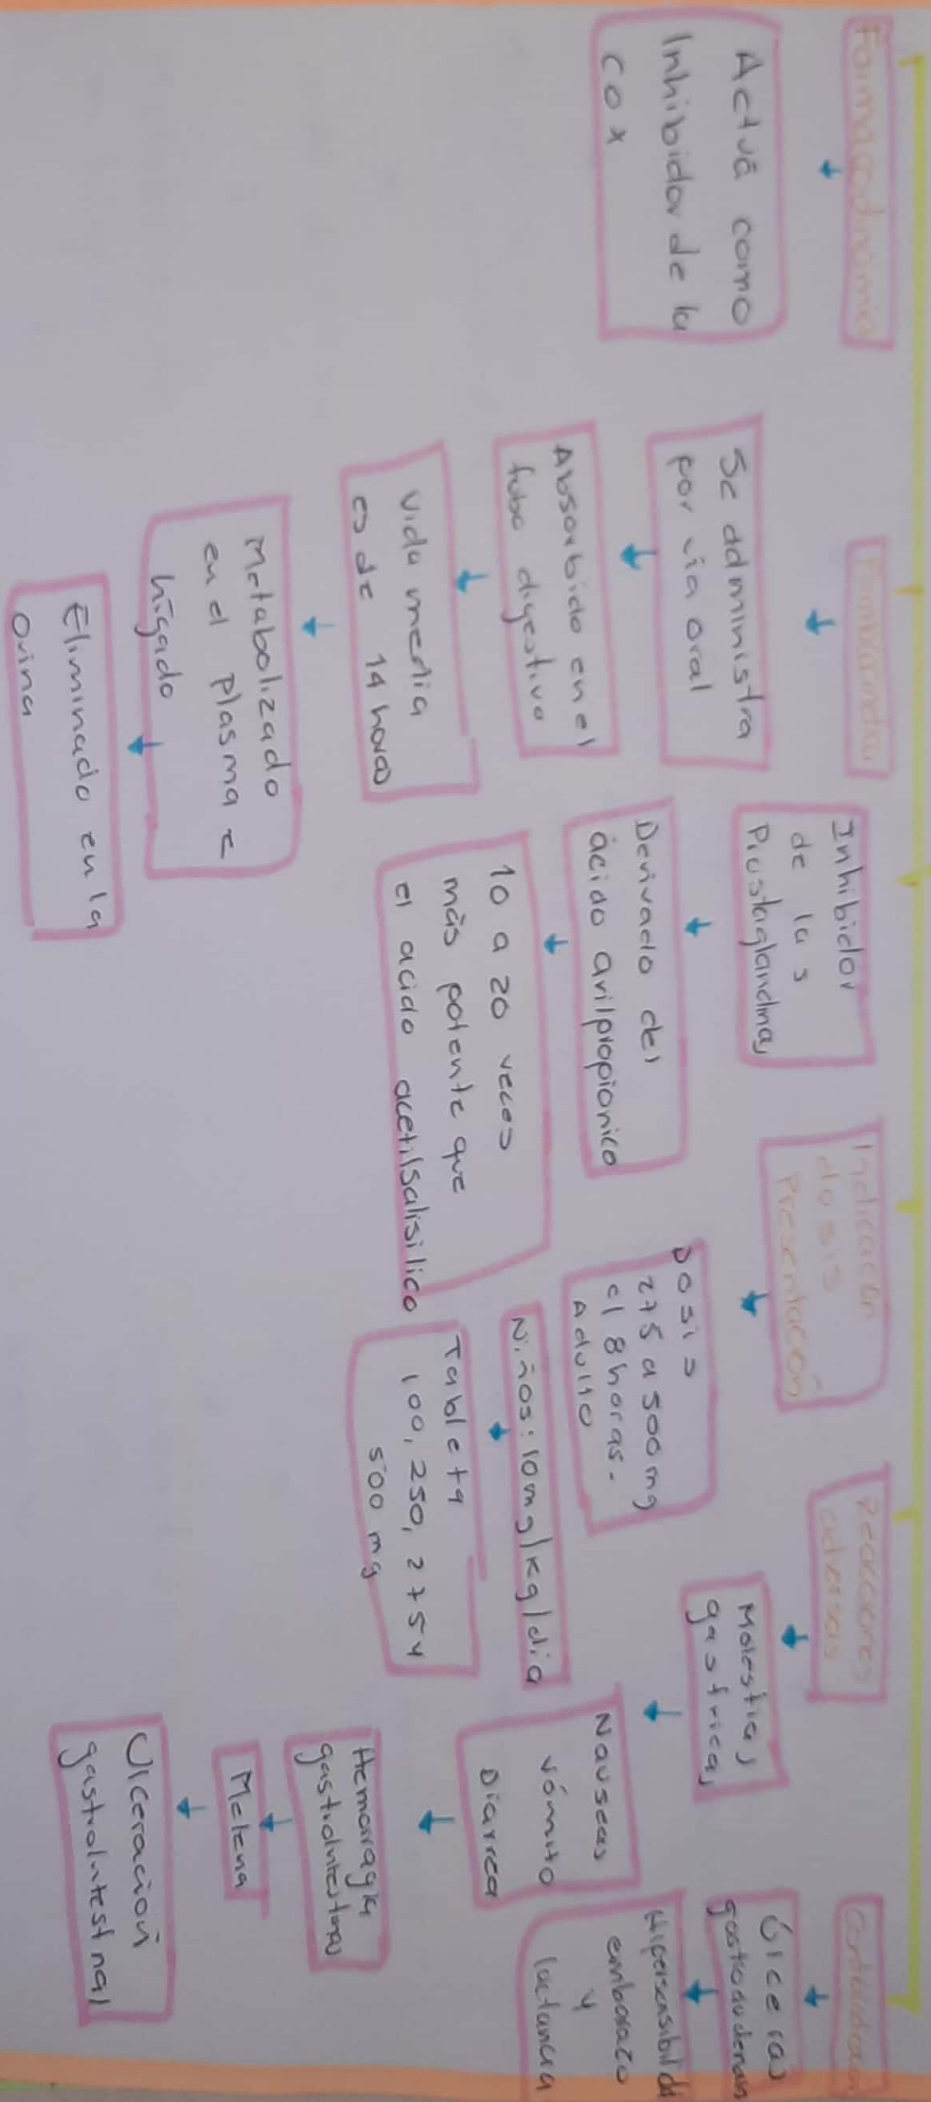 Farmacodinamia
Actuá como
Inhibidor de la
COX
Farmacocinetica
Se administra
por via oral
Absorbido en el
tubo digestivo
Vida media
es de 14 horas
Metabolizado
en el plasma e
hígado
Eliminado en la
Orina
Inhibidor
de las
Prostaglandinas
Derivado del
ácido arilpropionico
10 a 20 veces
más potente que
el acido acetilsalisilico
Indicación
dosis
Presentación
Dosis
275 a 500 mg
c/ 8 horas.
Adulto
Niños: 10mg/kg/dia
Tableta
100, 250, 275 y
500 mg
Reacciones
adversas
Molestias
gastricas
Nauseas
vómito
Diarrea
Hemorragia
gastrointestinal
Melena
Ulceración
gastrointestinal
Úlceras
Hipersensibilidad
embarazo
y
lactancia